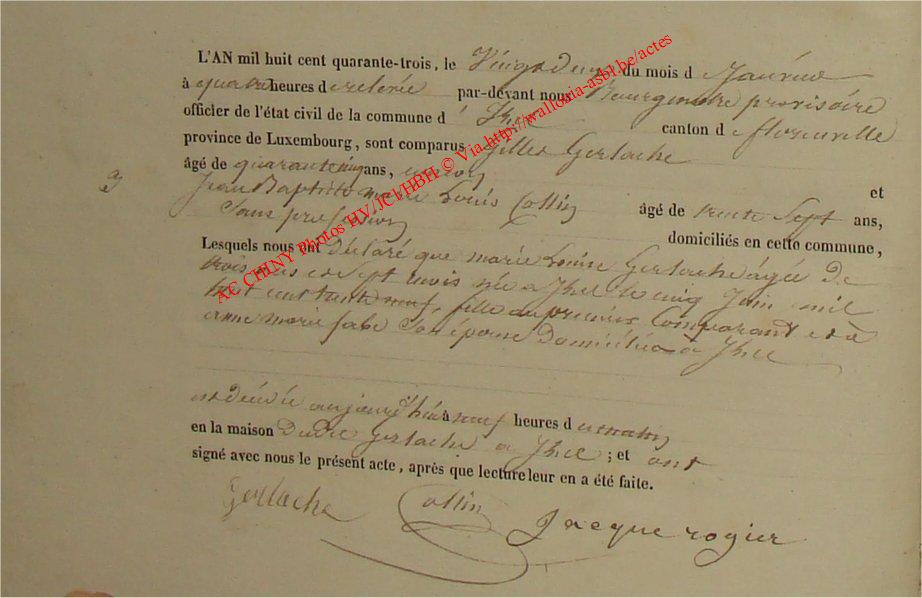 L'AN mil huit cent quarante-trois, le Vingt deux du mois d e Janvier
à quatre heures d e relevée par-devant nous Bourgmestre provisoire
officier de l'état civil de la commune d ' Izel canton d e florenville
province de Luxembourg, sont comparus Gilles Gerlache
âgé de quarante cinq ans, et
Jean Baptiste marie Louis Collin âgé de trente Sept ans,
Sans profession domiciliés en cette commune,
Lesquels nous ont déclaré que marie Louise Gerlache âgée de
trois ans et sept mois née a Izel le cinq Juin mil
huit cent trente neuf, fille du premier Comparant et de
anne marie Son épouse Domiciliée a Izel
est décédée aujourd'hui à neuf heures d u matin
en la maison Dudit Gerlache a Izel ; et ont
signé avec nous le présent acte, après que lecture leur en a été faite.
Gerlache Collin Jacque rogier
AC CHINY Photos HV/JCl/HBH © Via http://wallonia-asbl.be/actes